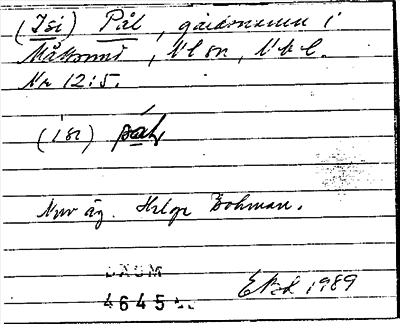 (Isi) Pål, gårdsnamn i
Måksund, Nlsn, Vbl.
Nr 12:5.
(isi) pål
Nuv äg. Helge Bohman.
DAUM
4645
EBd 1989